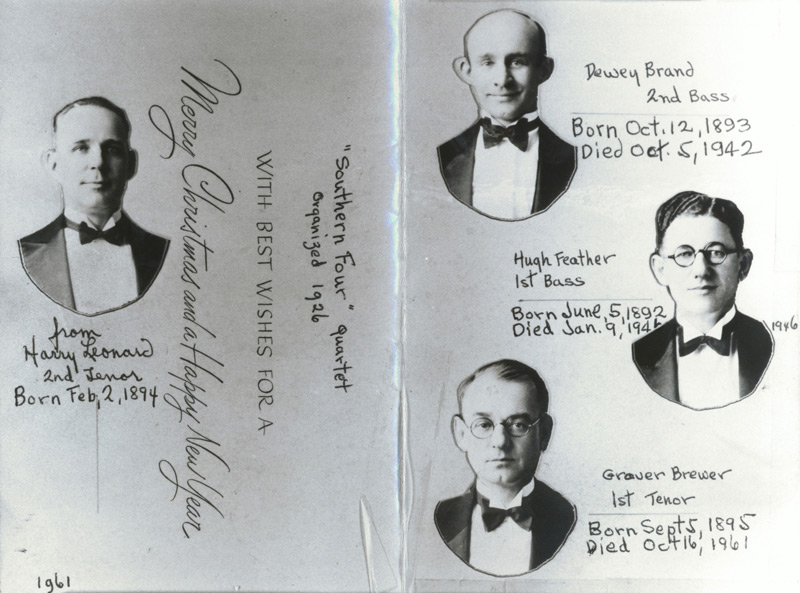 WITH BEST WISHES FOR A
Merry Christmas and a Happy New Year
"Southern Four" quartet
Organized 1926
from
Harry Leonard
2nd Tenor
Born Feb, 2, 1894
1961
Dewey Brand
2nd Bass
Born Oct. 12, 1893
Died Oct. 5, 1942
Hugh Feather
1st Bass
Born June, 5, 1892
Died Jan. 9, 1946
1946
Graver Brewer
1st Tenor
Born Sept 5, 1895
Died Oct 16, 1961